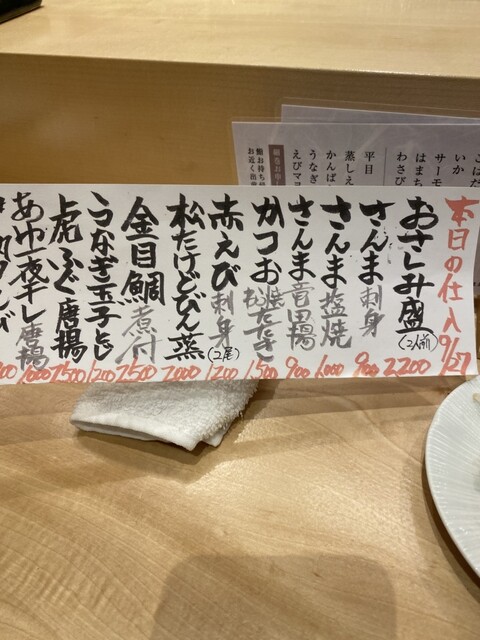 本日の仕入 9/27
おさしみ盛(2人前) 2200
さんま刺身 900
さんま塩焼 1,000
さんま竜田揚 900
かつお焼たたき 1,500
赤えび刺身(2尾) 1200
松たけどびん蒸 2,000
金目鯛煮付 2500
うなぎ玉子とじ 1200
虎ふぐ唐揚 1500
あゆ一夜干し唐揚 1000
いか
サーモ
はまち
わさび
平目
蒸しえ
かんぱ
うなぎ
えびマヨ
お近く